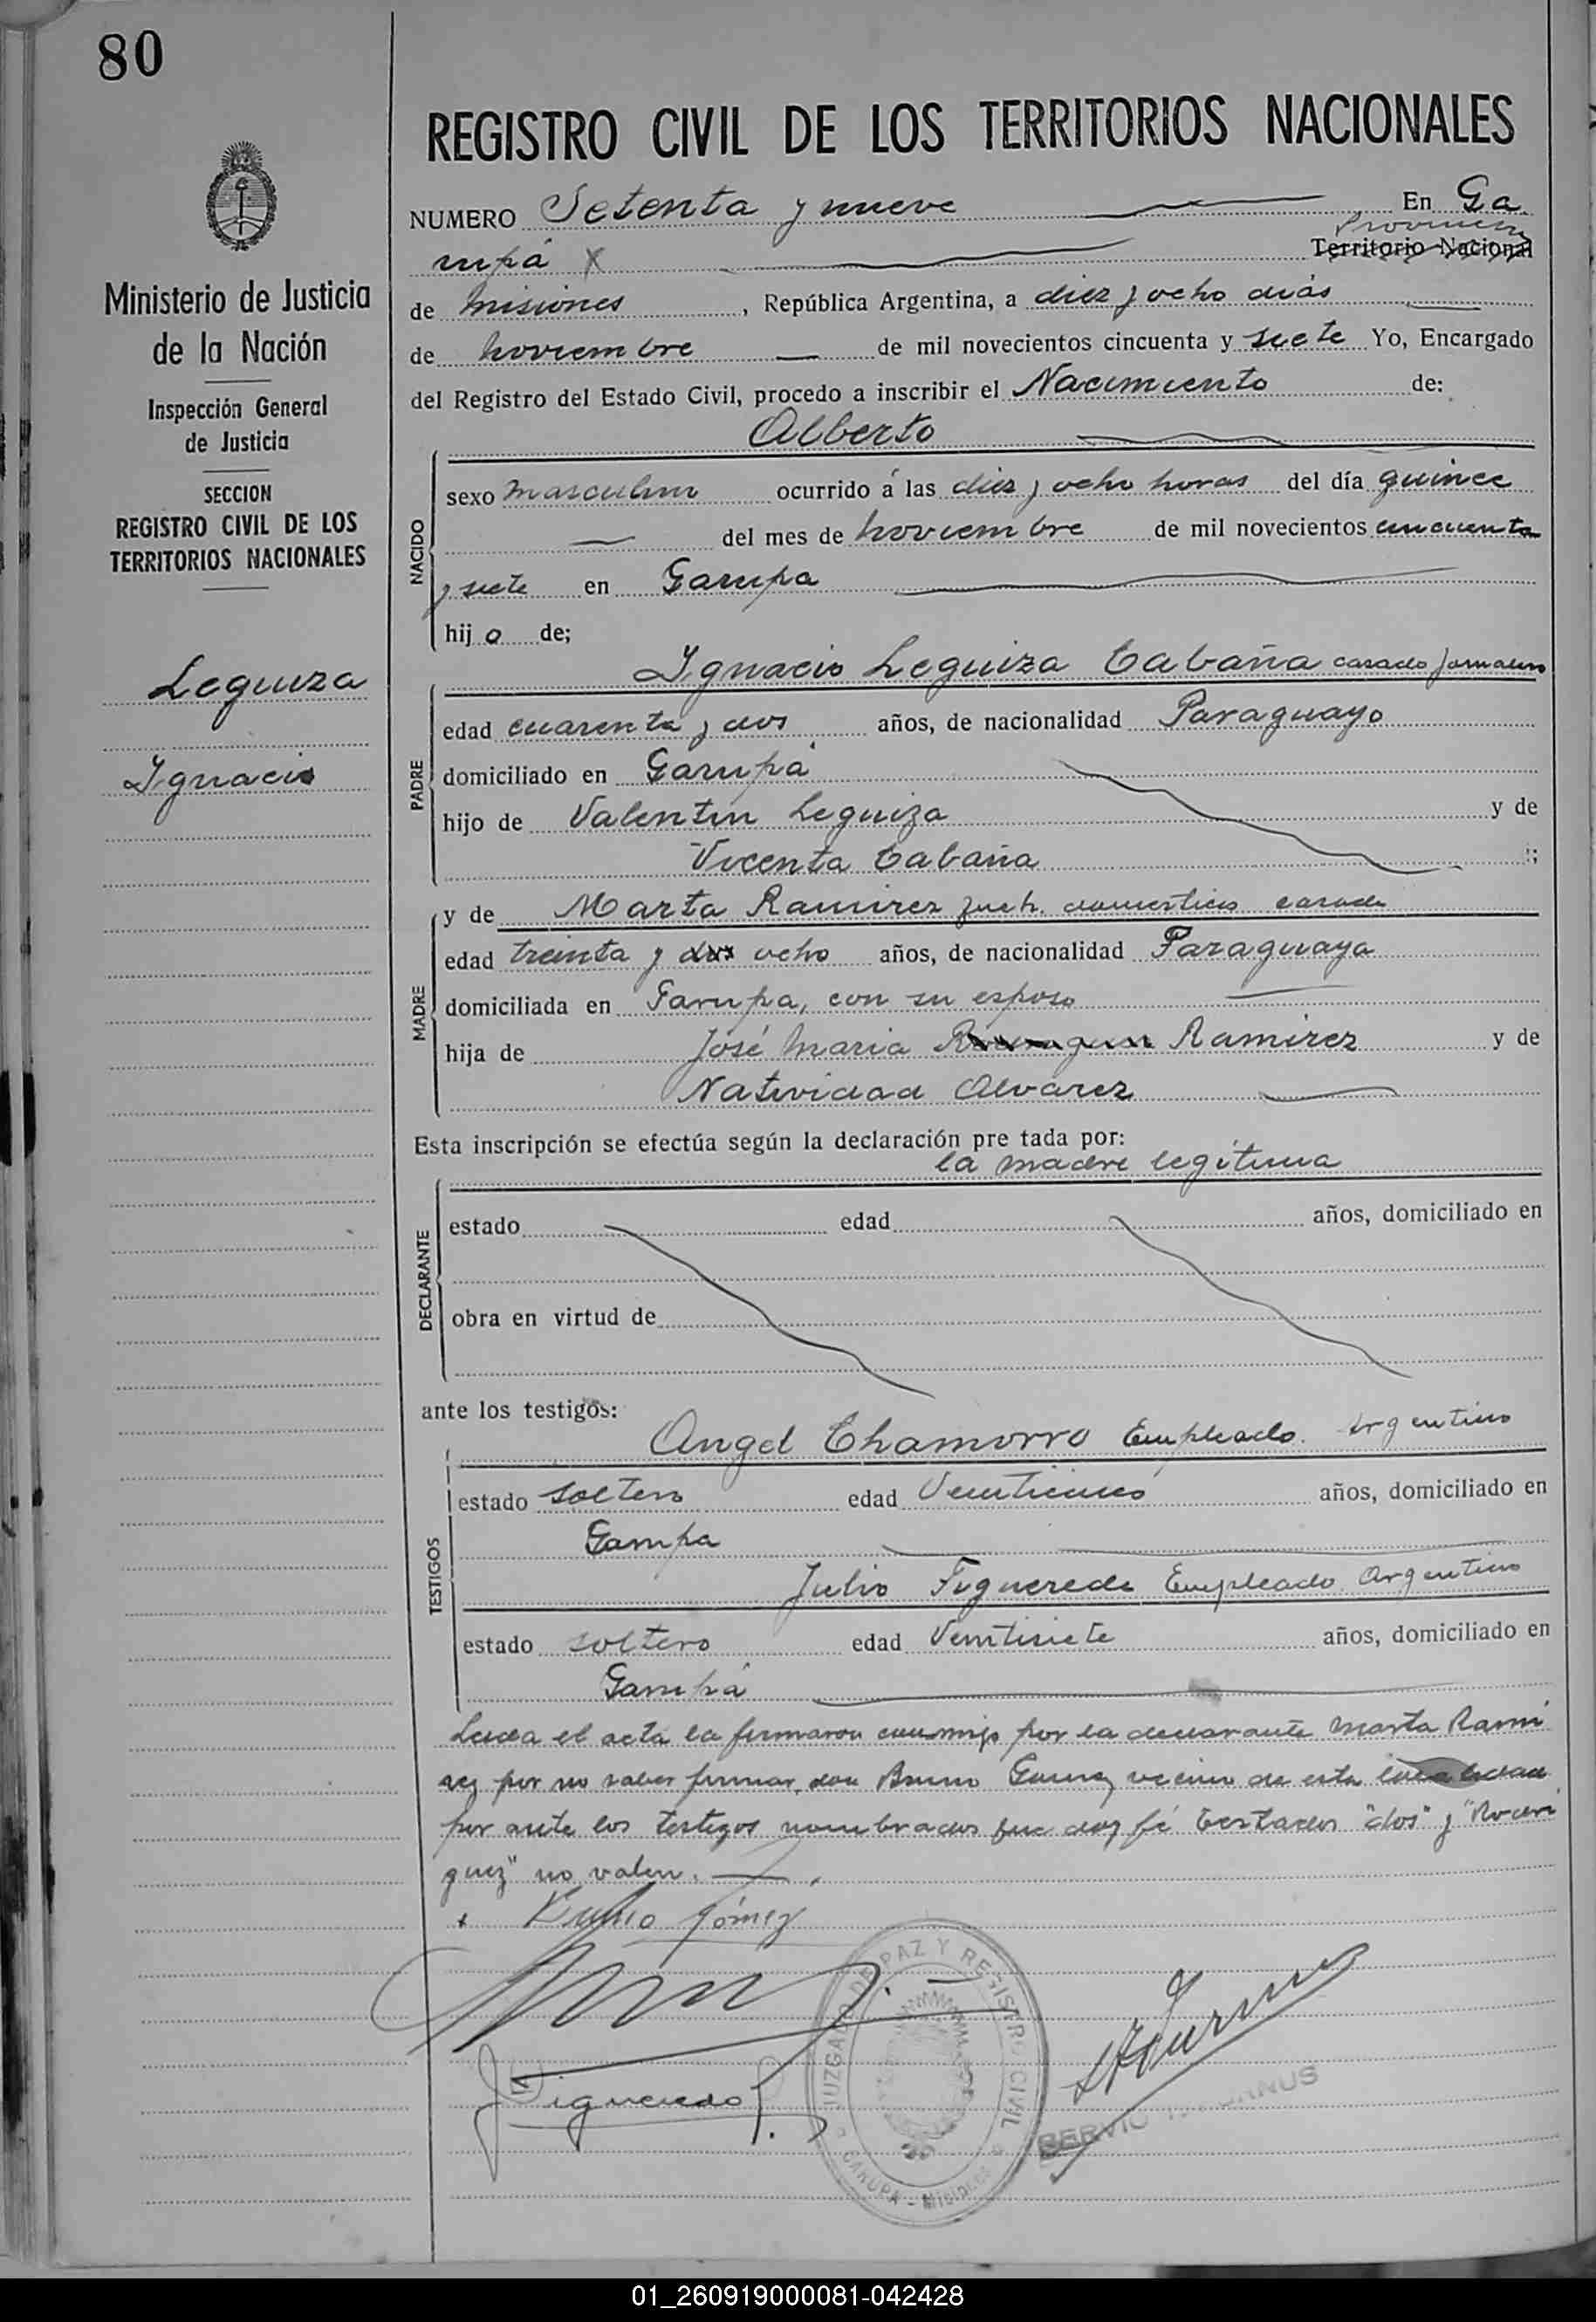 80
REGISTRO CIVIL DE LOS TERRITORIOS NACIONALES
Ministerio de Justicia
de la Nación
Inspección General
de Justicia
SECCION
REGISTRO CIVIL DE LOS
TERRITORIOS NACIONALES
Leguiza
Ignacio
NUMERO Setenta y nueve En Ga
rupá x Provincia
Territorio Nacional
de Misiones, República Argentina, a diez y ocho diás
de Noviembre de mil novecientos cincuenta y siete Yo, Encargado
del Registro del Estado Civil, procedo a inscribir el Nacimiento de:
Alberto
NACIDO
sexo masculino ocurrido á las diez y ocho horas del día quince
del mes de Noviembre de mil novecientos cincuenta
y siete en Garupa
hij o de;
Ignacio Leguiza Cabaña casado Jornalero
PADRE
edad cuarenta y dos años, de nacionalidad Paraguayo
domiciliado en Garupá
hijo de Valentin Leguiza y de
Vicenta Cabaña ;
MADRE
y de Marta Ramirez domesticos casada
edad treinta y dos ocho años, de nacionalidad Paraguaya
domiciliada en Garupa, con su esposo
hija de José Maria Ramirez y de
Natividad Alvarez
Esta inscripción se efectúa según la declaración pre tada por:
la madre legitima
DECLARANTE
estado edad años, domiciliado en
obra en virtud de
ante los testigos:
TESTIGOS
Angel Chamorro Empleado. Argentino
estado soltero edad Veinticinco años, domiciliado en
Garupa
Julio Figueredo Empleado Argentino
estado soltero edad Veintisiete años, domiciliado en
Garupá
Leida el acta la firmaron conmigo por la declarante Marta Rami
rez por no saber firmar, don Bruno Gomez vecino de esta localidad
por ante los testigos nombrados que doy fé. Testados "dos" y "Rodri
guez" no valen.
Bruno Gómez
J Figueredo
JUZGADO DE PAZ Y REGISTRO CIVIL
GARUPA - MISIONES
SERVIO
01_260919000081-042428